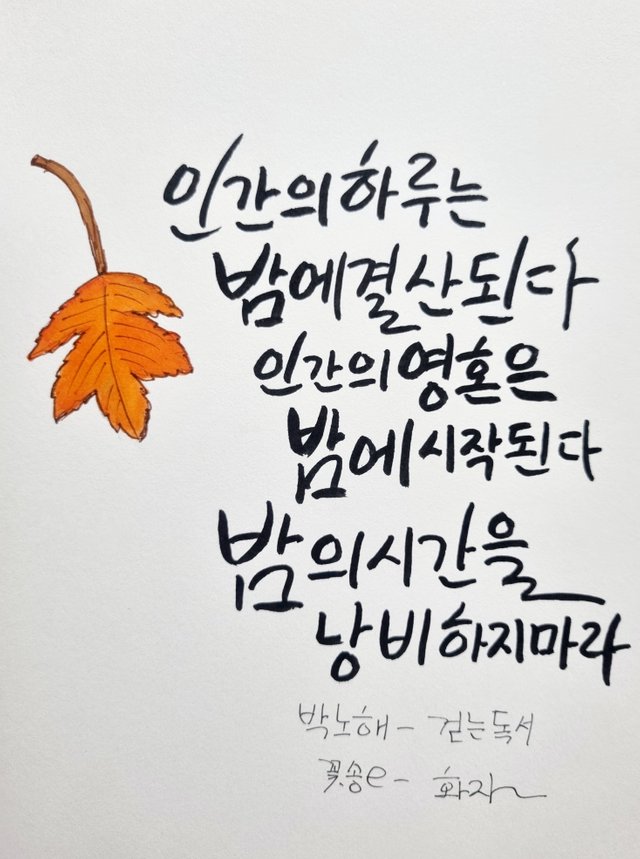 인간의 하루는
밤에 결산된다
인간의 영혼은
밤에 시작된다
밤의 시간을
낭비하지마라
박노해 - 걷는독서
꽃송e - 화자